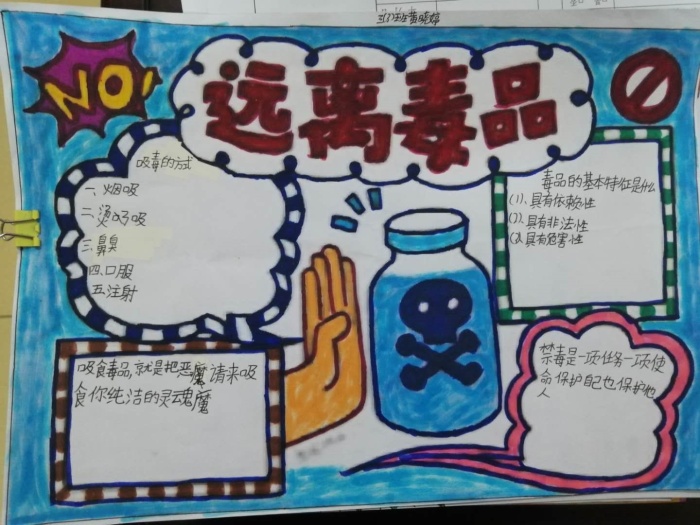 NO!
远离毒品
吸毒的方式
一、烟吸
二、烫吸
三、鼻臭
四、口服
五、注射
毒品的基本特征是什么
(1)、具有依赖性
(2)、具有非法性
(3)、具有危害性
吸食毒品,就是把恶魔请来吸
食你纯洁的灵魂魔
禁毒是一项任务一项使
命保护自己也保护他
人